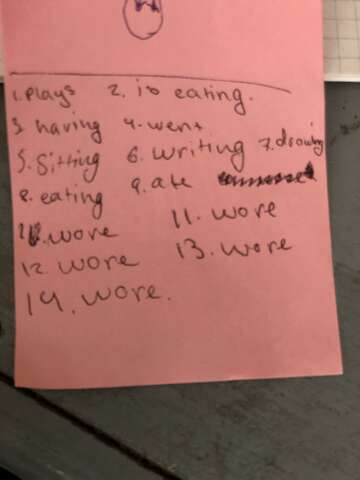 1. plays 2. is eating.
3. having 4. went
5. sitting 6. writing 7. drawing
8. eating 9. ate
10. wore 11. wore
12. wore 13. wore
14. wore.